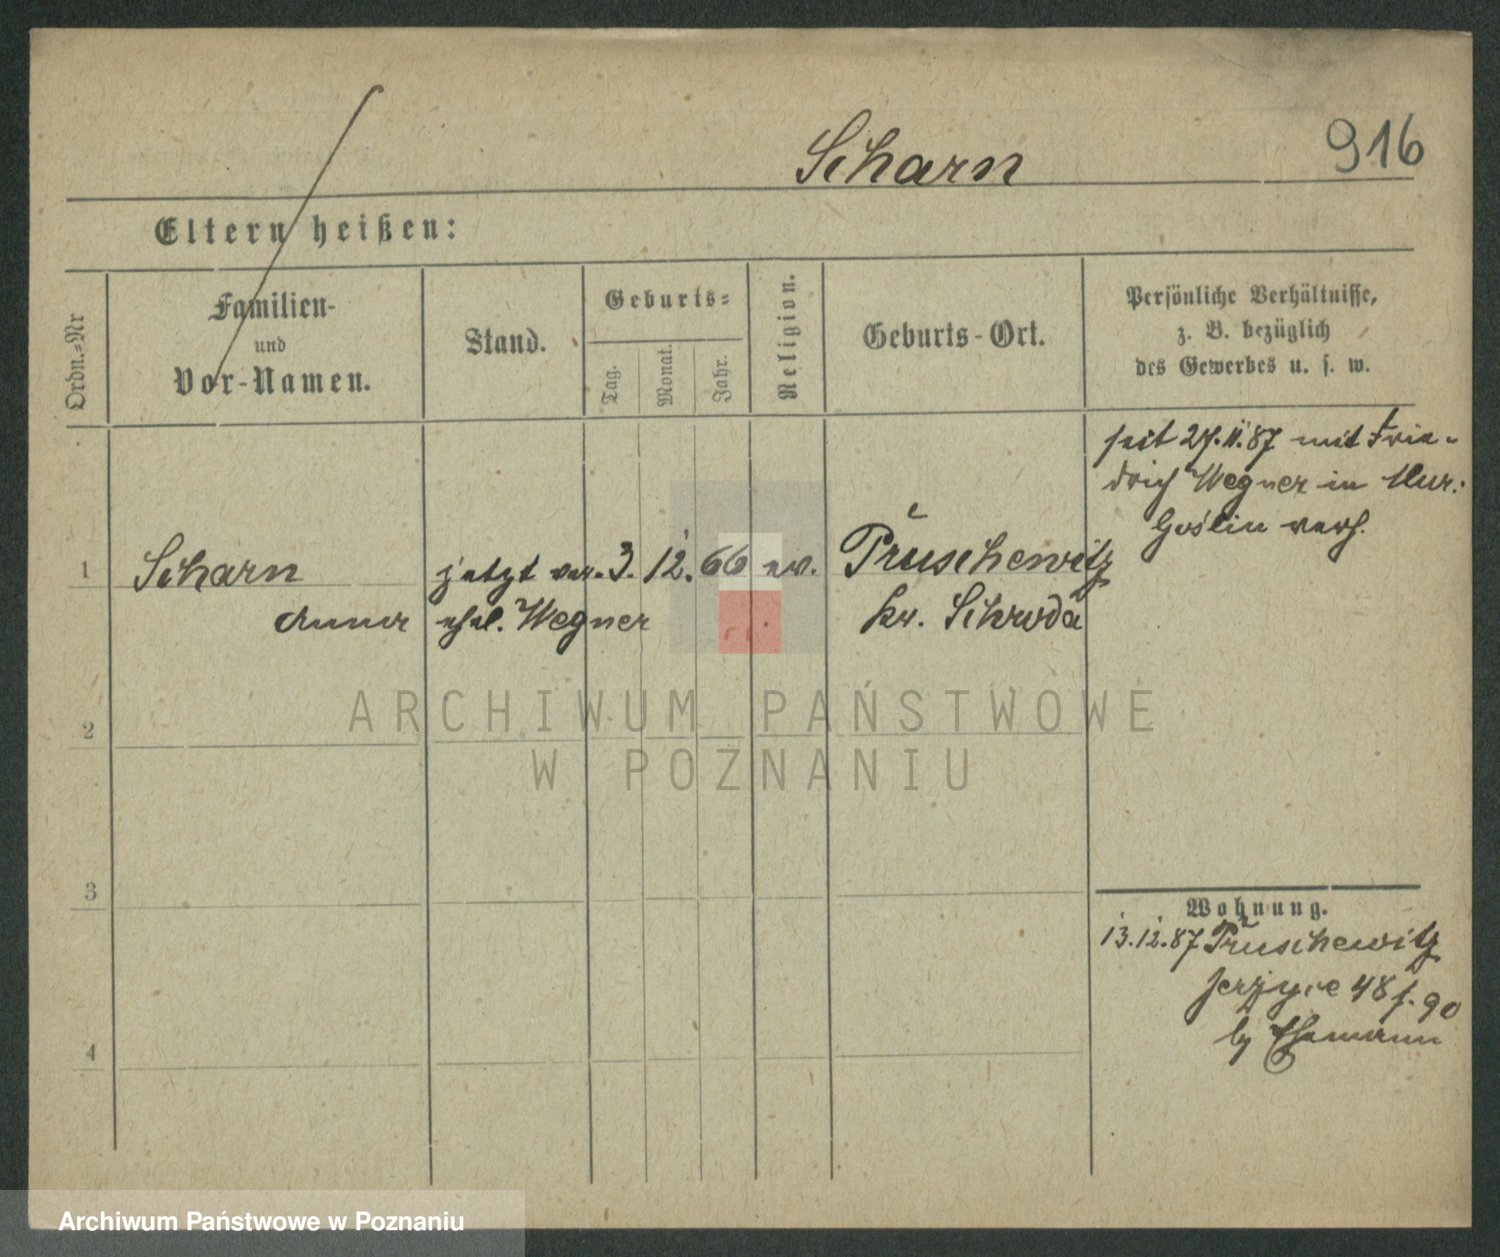 Scharn
916
Eltern heißen:
Ordn.-Nr
Familien-
und
Vor-Namen.
Stand.
Geburts-
Tag.
Monat.
Jahr.
Religion.
Geburts-Ort.
Persönliche Verhältnisse,
z. B. bezüglich
des Gewerbes u. s. w.
seit 27.11.87 mit Frie-
drich Wegner in Mur:
Goslin verh.
1
Scharn
Anna
jetzt ver-
ehel. Wegner
3. 12. 66
ev.
Pruschewitz
Kr. Schroda
2
3
4
Wohnung.
13.12.87 Pruschewitz
Jerzyce 48 f. 90
by Ehemann
ARCHIWUM PAŃSTWOWE
W POZNANIU
Archiwum Państwowe w Poznaniu